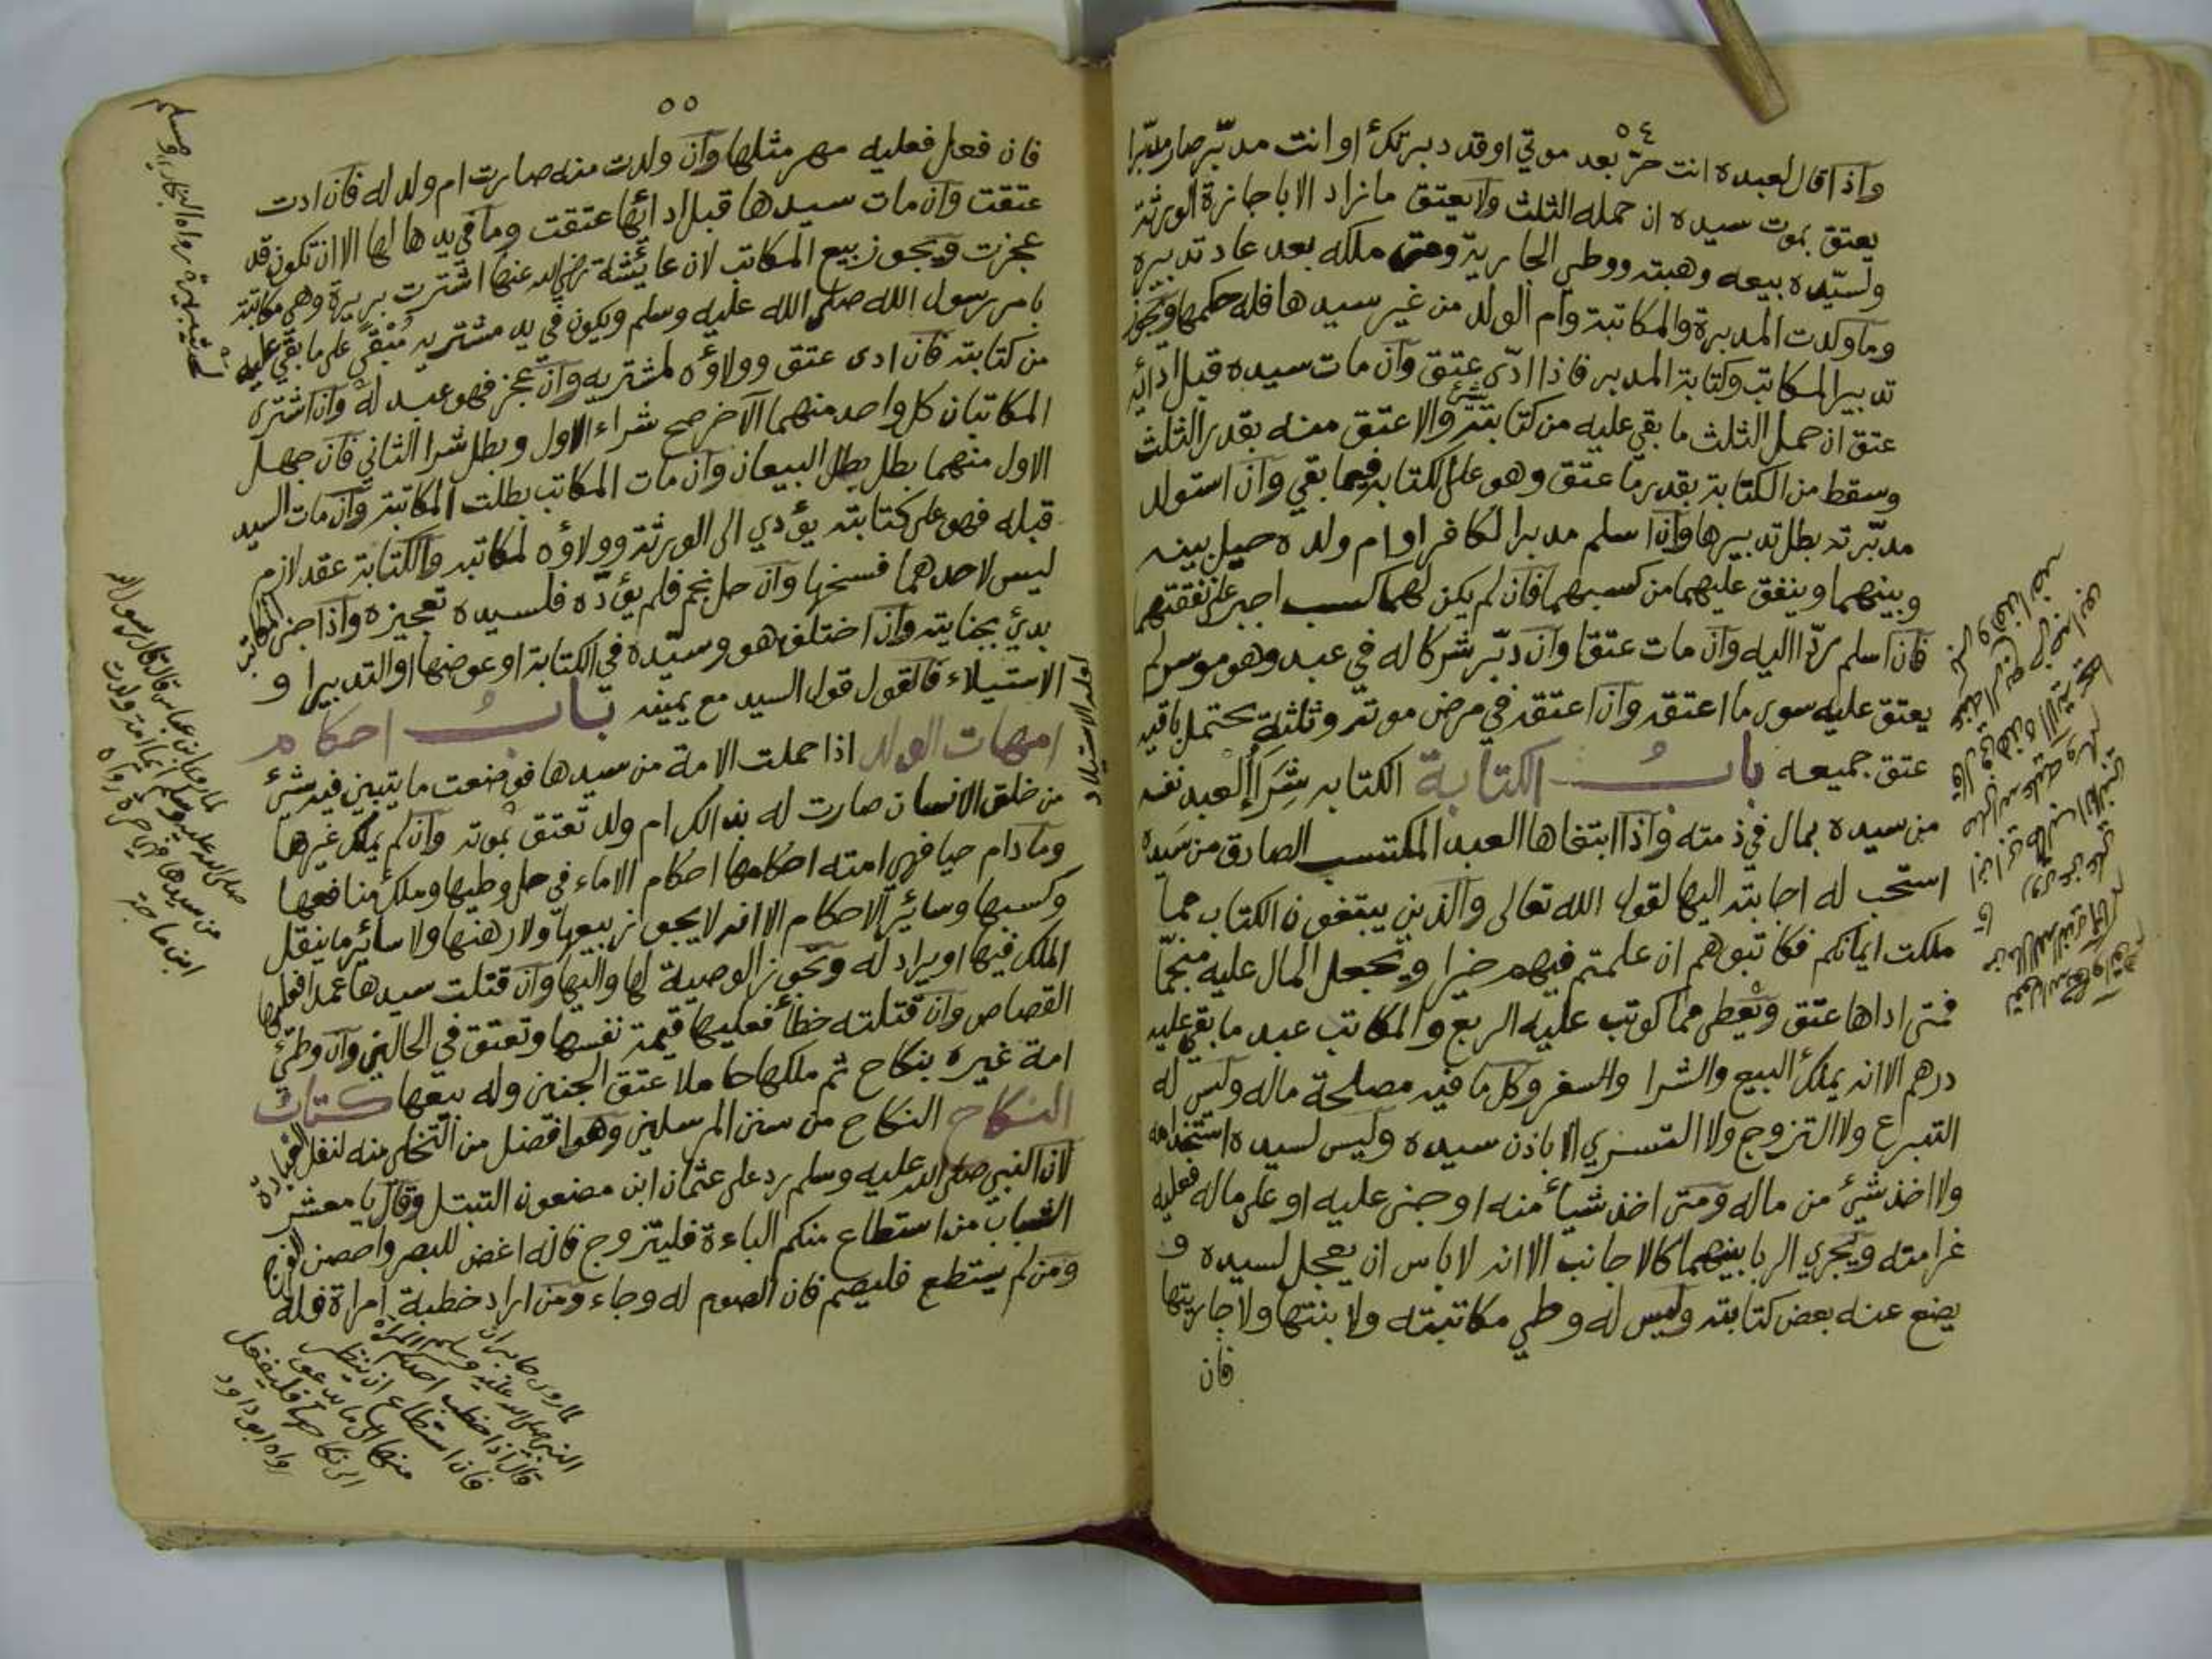 ٥٤
واذا قال لعبده انت حرّ بعد موتي او قد دبرتك او انت مدبّر صار مدبّرا
يعتق بموت سيده ان حمله الثلث ولا يعتق ما زاد الا باجازة الورثة
ولسيّده بيعه وهبته ووطي الجارية ومتى ملكه بعد عاد تدبيره
وما ولدت المدبرة والمكاتبة وام الولد من غير سيدها فله حكمها ويجوز
تدبير المكاتب وكتابة المدبر فاذا ادّى عتق وان مات سيده قبل ادائه
عتق ان حمل الثلث ما بقي عليه من كتابته والا عتق منه بقدر الثلث
وسقط من الكتابة بقدر ما عتق وهو على الكتابة فيما بقي وان استولد
مدبّرته بطل تدبيرها وان اسلم مدبر الكافر او ام ولده حيل بينه
وبينهما وينفق عليهما من كسبهما فان لم يكن لهما كسب اجبر على نفقتهما
فان اسلم ردّا اليه وان مات عتقا وان دبّر شركا له في عبد وهو موسر لم
يعتق عليه سوى ما اعتقه وان اعتقه في مرض موته وثلثه يحتمل باقيه
عتق جميعه باب الكتابة الكتابه شراأ العبد نفسه
من سيده بمال في ذمته واذا ابتغاها العبد المكتسب الصادق من سيده
استحب له اجابته اليها لقول الله تعالى والذين يبتغون الكتاب مما
ملكت ايمانكم فكاتبوهم ان علمتم فيهم خيرا ويجعل المال عليه منجّما
فمتى اداها عتق ويعطى مما كوتب عليه الربع والمكاتب عبد ما بقي عليه
درهم الا انه يملك البيع والشرا والسفر وكل ما فيه مصلحة ماله وليس له
التبرع ولا التزوج ولا التسري الا باذن سيده وليس لسيده استخدامه
ولا اخذ شيئ من ماله ومتى اخذ شيأ منه او جنى عليه او على ماله فعليه
غرامته ويجري الربا بينهما كالاجانب الا انه لا باس ان يعجل لسيده و
يضع عنه بعض كتابته وليس له وطي مكاتبته ولا بنتها ولا جاريتها
فان
٥٥
فان فعل فعليه مهر مثلها وان ولدت منه صارت ام ولد له فان ادت
عتقت وان مات سيدها قبل ادائها عتقت وما في يدها لها الا ان تكون قد
عجزت ويجوز بيع المكاتب لان عايشة رضي الله عنها اشترت بريرة وهي مكاتبة
بامر رسول الله صلى الله عليه وسلم ويكون في يد مشتريه مُبْقىً على ما بقي عليه
من كتابته فان ادى عتق وولاؤه لمشتريه وان عجز فهو عبد له وان اشترى
المكاتبان كل واحد منهما الآخر صح شراء الاول وبطل شرا الثاني فان جهل
الاول منهما بطل بطل البيعان وان مات المكاتب بطلت المكاتبة وان مات السيد
قبله فهو على كتابته يؤدي الى الورثة وولاؤه لمكاتبه والكتابة عقد لازم
ليس لاحدهما فسخها وان حل نجم فلم يؤدّه فلسيده تعجيزه واذا جنى المكاتب
بدئ بجنايته وان اختلف هو وسيّده في الكتابة او عوضها او التدبير او
الاستيلاء فالقول قول السيد مع يمينه باب احكام
امهات الولد اذا حملت الامة من سيدها فوضعت ما يتبين فيه شئ
من خلق الانسان صارت له بذالك ام ولد تعتق بموته وان لم يملك غيرها
وما دام حيا فهي امته احكامها احكام الاماء في حل وطيها وملك منافعها
وكسبها وسائر الاحكام الا انه لا يجوز بيعها ولا رهنها ولا سائر ما ينقل
الملك فيها او يراد له وتجوز الوصية لها واليها وان قتلت سيدها عمدا فعليها
القصاص وان قتلته خطأ فعليها قيمة نفسها وتعتق في الحالين وان وطئ
امة غيره بنكاح ثم ملكها حاملا عتق الجنين وله بيعها كتاب
النكاح النكاح من سنن المرسلين وهو افضل من التخلي منه لنفل العبادة
لان النبي صلى الله عليه وسلم رد على عثمان ابن مضعون التبتل وقال يا معشر
الشباب من استطاع منكم الباءة فليتزوج فانه اغض للبصر واحصن للفرج
ومن لم يستطع فليصم فان الصوم له وجاء ومن اراد خطبة امراة فله
لما روى جابر ان
النبي صلى الله عليه وسلم
قال اذا خطب احدكم المراة
فان استطاع ان ينظر
منها الى ما يدعوه
الى نكاحها فليفعل
رواه ابو داود
لما روى ابن عباس قال قال رسول الله
صلى الله عليه وسلم ايما امة ولدت
من سيدها فهي حرة رواه
ابن ماجة
رواه البخاري ومسلم
او الاستيلاد